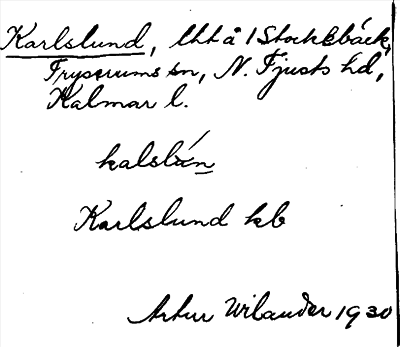 Karlslund, lht å 1 Stocksbäck,
Fryserums sn, N. Tjusts hd,
Kalmar l.
kalslún
Karlslund kb
Artur Wilander 1930